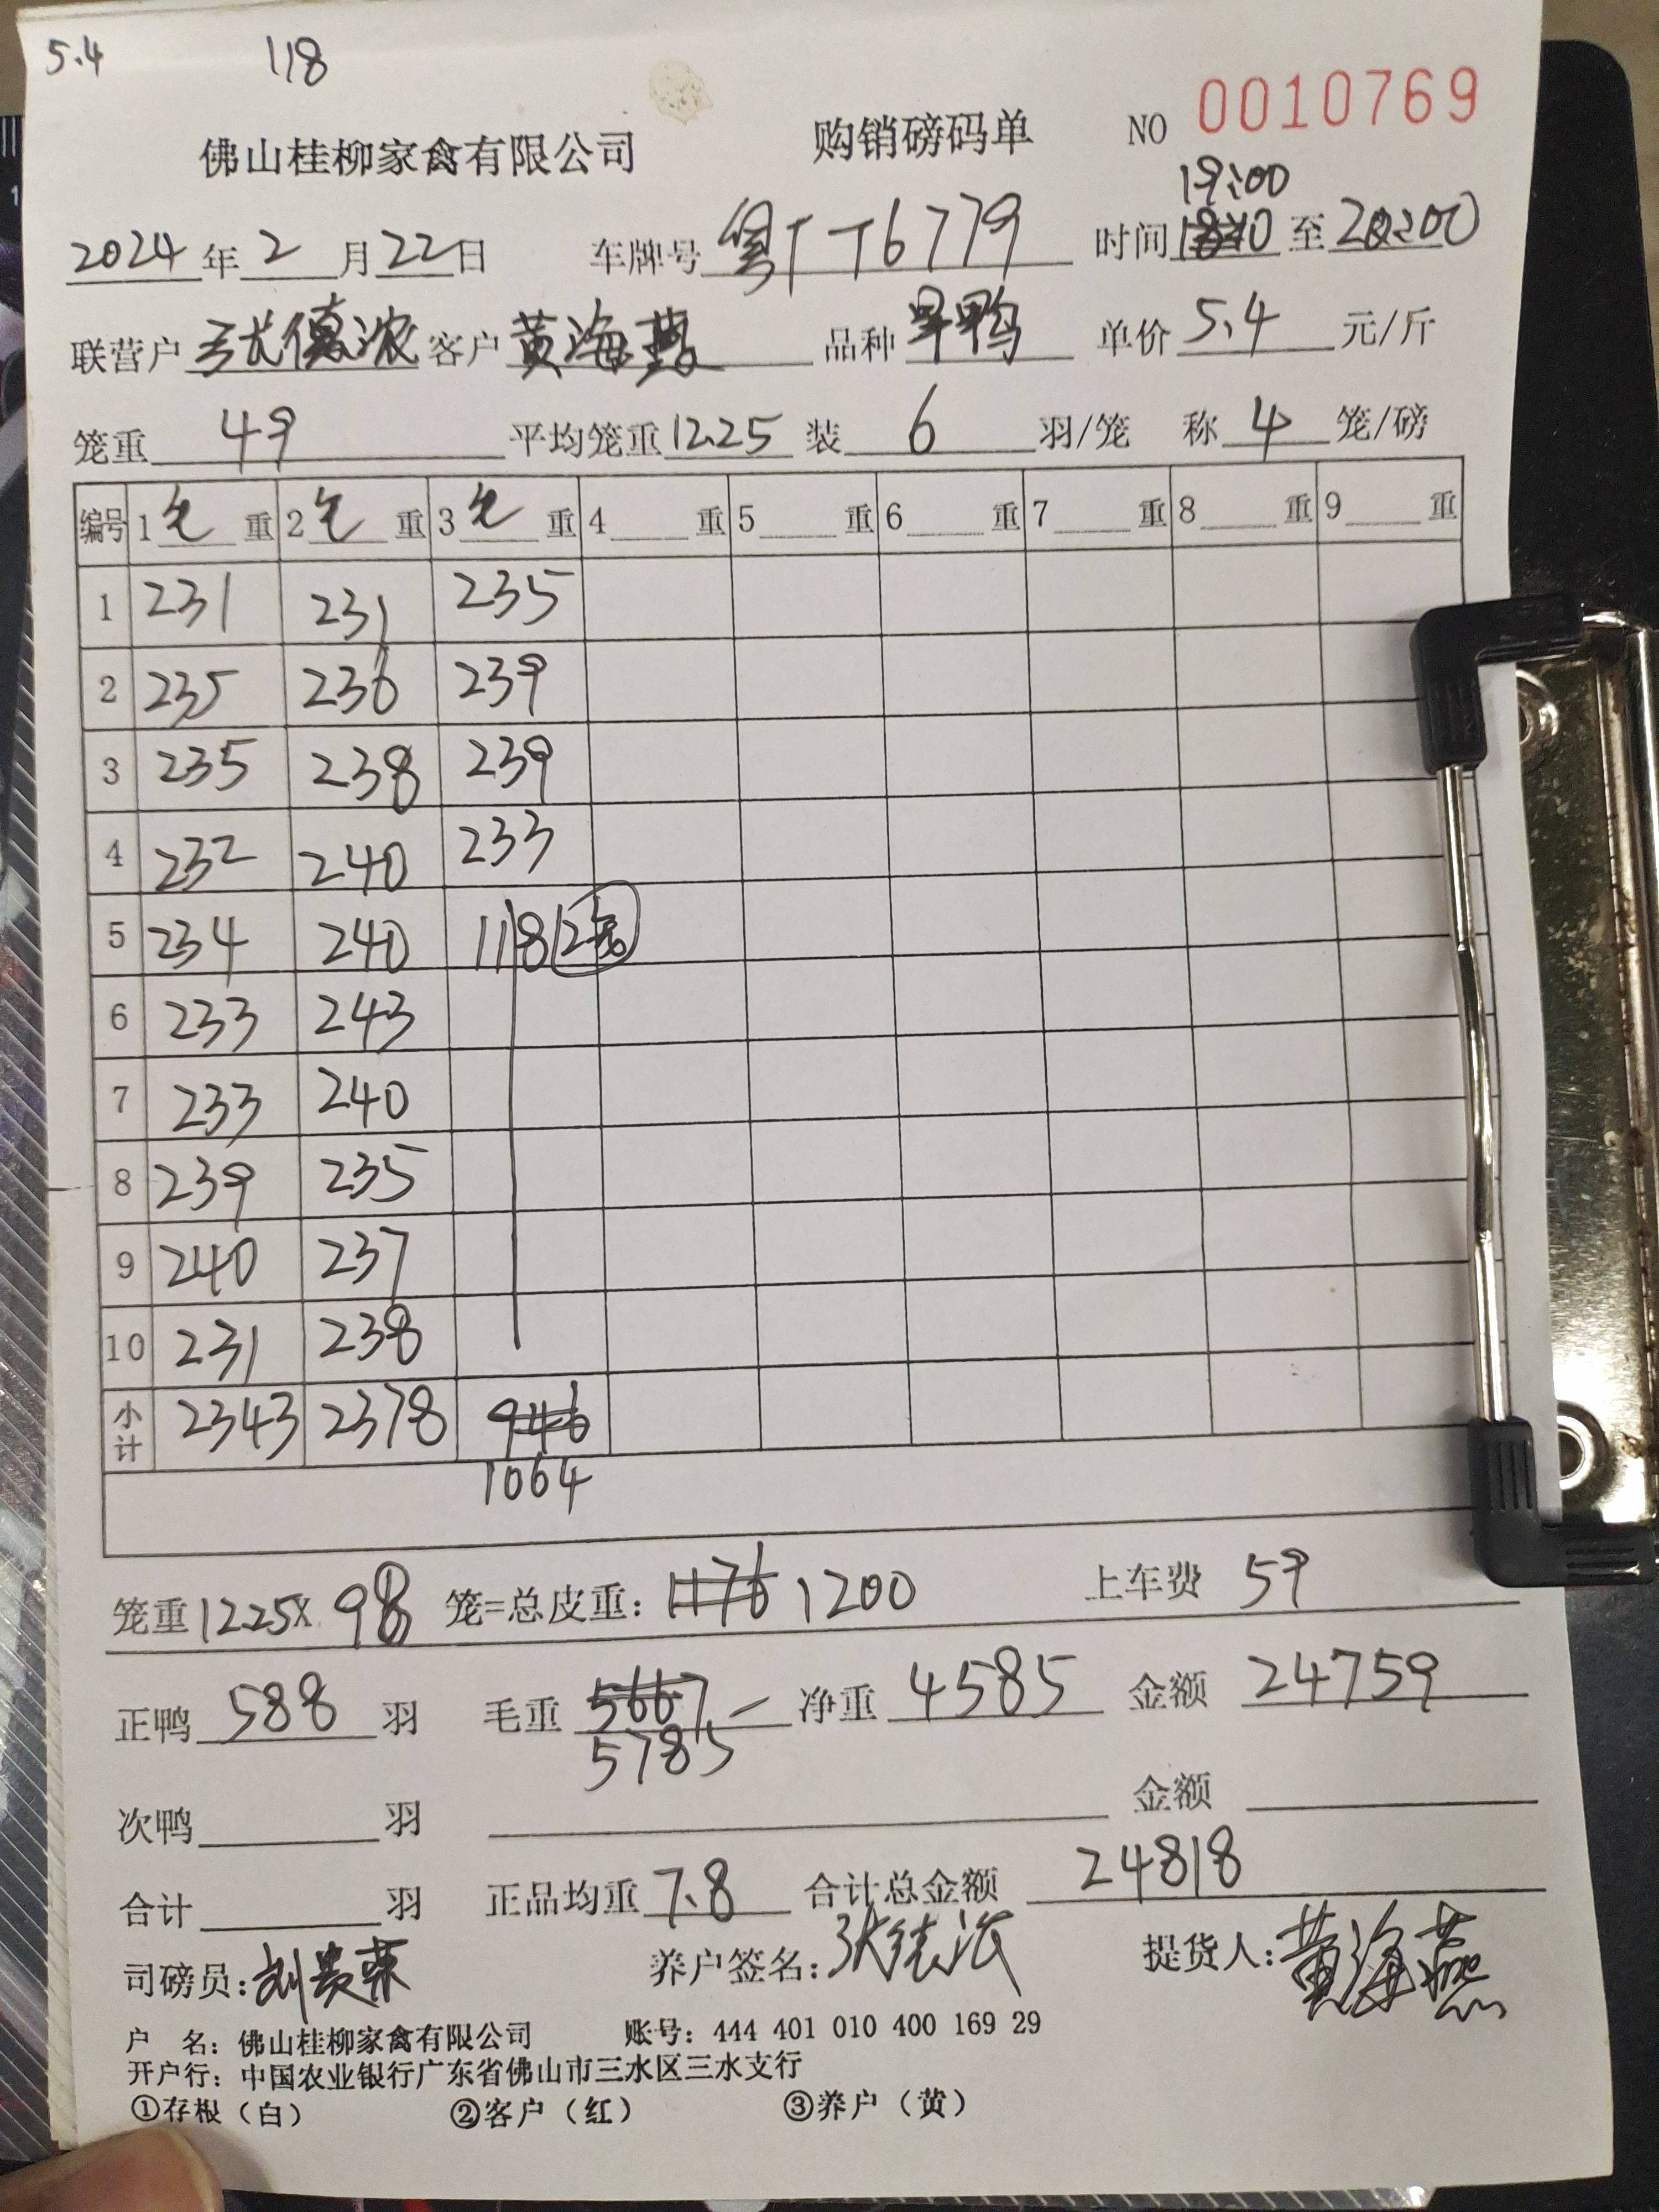 5.4 118
佛山桂柳家禽有限公司 购销磅码单 NO 0010769
19:00
2024年2月22日 车牌号 粤TT6779 时间 至20:00
联营户 张德浓 客户 黄海燕 品种 旱鸭 单价5.4元/斤
笼重 49 平均笼重12.25 装 6 羽/笼 称 4 笼/磅
编号 1毛重 2毛重 3毛重 4 重 5 重 6 重 7 重 8 重 9 重
1 231 231 235
2 235 236 239
3 235 238 239
4 232 240 233
5 234 240 118 2笼
6 233 243
7 233 240
8 239 235
9 240 237
10 231 238
小计 2343 2378 946
1064
笼重12.25X 98 笼=总皮重: 1176 1200 上车费 59
正鸭 588 羽 毛重 5667 净重 4585 金额 24759
5785
次鸭 羽 金额
合计 羽 正品均重 7.8 合计总金额 24818
司磅员:刘贵荣 养户签名: 提货人:黄海燕
户 名: 佛山桂柳家禽有限公司 账号: 444 401 010 400 169 29
开户行: 中国农业银行广东省佛山市三水区三水支行
①存根（白） ②客户（红） ③养户（黄）